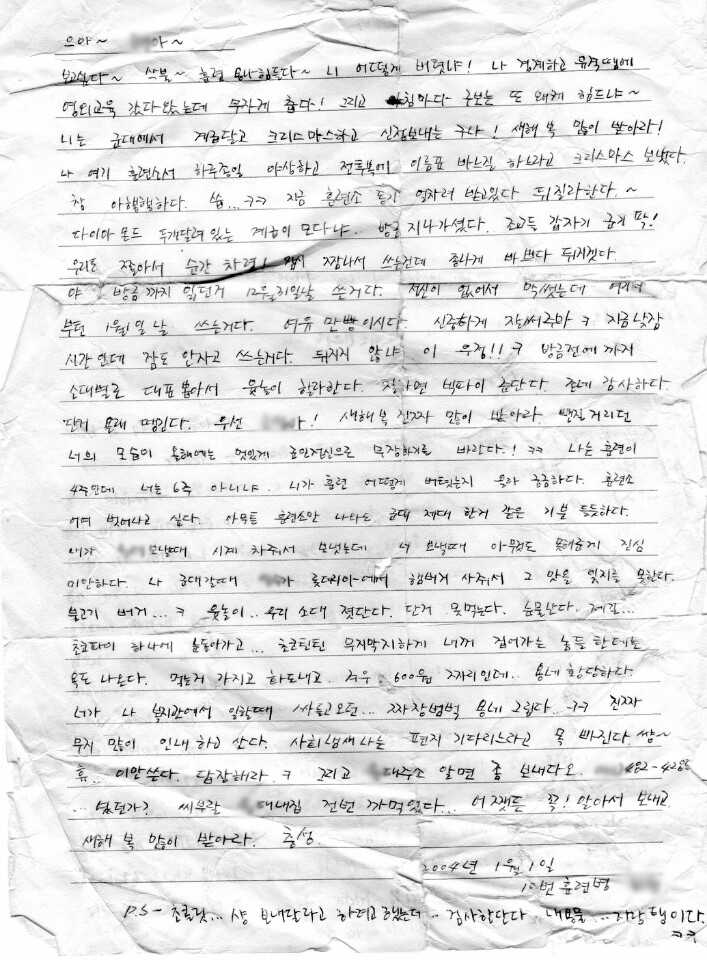 으아~ 아~
보고싶다~ 썩을~ 훈련 욜나힘들다~ 니 어떻게 버텼냐! 나 경계하고 묶직때에
영외교육 갔다왔는데 무쟈게 춥다! 그리고 아침마다 구보는 또 왜케 힘드냐~
니는 군대에서 계급달고 크리스마스하고 신정보내는구나! 새해 복 많이 받아라!
나 여기 훈련소서 하루종일 야상하고 전투복에 이름표 바느질 하느라고 크리스마스 보냈다.
참 아햏햏하다. 씁...ㅋㅋ 지금 훈련소 동기 얼차려 받고있다 뒤질라한다.~
다이아몬드 두개달려 있는 계급이 모다냐. 방금 지나가셨다. 조교들 갑자기 군기 팍!
우리도 쫄아서 순간 차렷! 잠시 짬나서 쓰는건데 졸나게 바쁘다 뒤지겟다.
야 방금까지 읽던거 12월31일날 쓴거다. 정신이 없어서 막썼는데 여기서
부턴 1월1일날 쓰는거다. 여유 만빵이시다. 신중하게 잘써주마 ㅋ 지금낮잠
시간인데 잠도 안자고 쓰는거다. 뒤지지 않냐 이 우정!! ㅋ 방금전에 까지
소대별로 대표뽑아서 윷놀이 할라한다. 잘하면 빅파이 준단다. 존네 감사하다.
단거 욜래 땡긴다. 우선 아! 새해 복 진짜 많이 받아라. 뺀질거리던
너의 모습이 올해에는 멋있게 군인정신으로 무장하기를 바란다.! ㅋㅋ 나는 훈련이
4주인데 너는 6주 아니냐. 니가 훈련 어떻게 버텼는지 욜라 궁금하다. 훈련소
어여 벗어나고 싶다. 아무튼 훈련소만 나와도 군대 제대 한거 같은 기분 들듯하다.
내가 보낼때 시계 차주서 보냈는데 너 보낼때 아무것도 못해준게 진심
미안하다. 나 군대갈때 가 롯데리아에서 햄버거 사줘서 그 맛을 잊지를 못한다.
불고기 버거... ㅋ 윷놀이.. 우리 소대 졌단다. 단거 못먹는다. 눈물난다. 제길...
초코파이 하나에 눈돌아가고... 초코틴틴 무지막지하게 내꺼 집어가는 놈들 한데는
욕도 나온다. 먹는거 가지고 화도내고. 겨우.. 600원 짜리인데.. 욜네 황당하다.
너가 나 복지관에서 일할때 싸들고오던... 짜장범벅 욜네 그립다...ㅋㅋ 진짜
무지 많이 인내하고 산다. 사회냄새나는 편지 기다리느라고 목 빠진다. 쌍~
휴.. 이만쓴다. 답장해라. ㅋ 그리고 대주소 알면 좀 보내다오. 482-4288
.. 났던가? 씨부랄 대내집 전번 까먹었다... 어쨌든 꼭! 알아서 보내고.
새해 복 많이 받아라. 충성.
2004년 1월 1일
10번 훈련병
P.S - 초콜릿... 샹 보내달라고 하려고 했는데.. 검사한단다. 내용물... 지랄햏이다.
ㅋㅋ